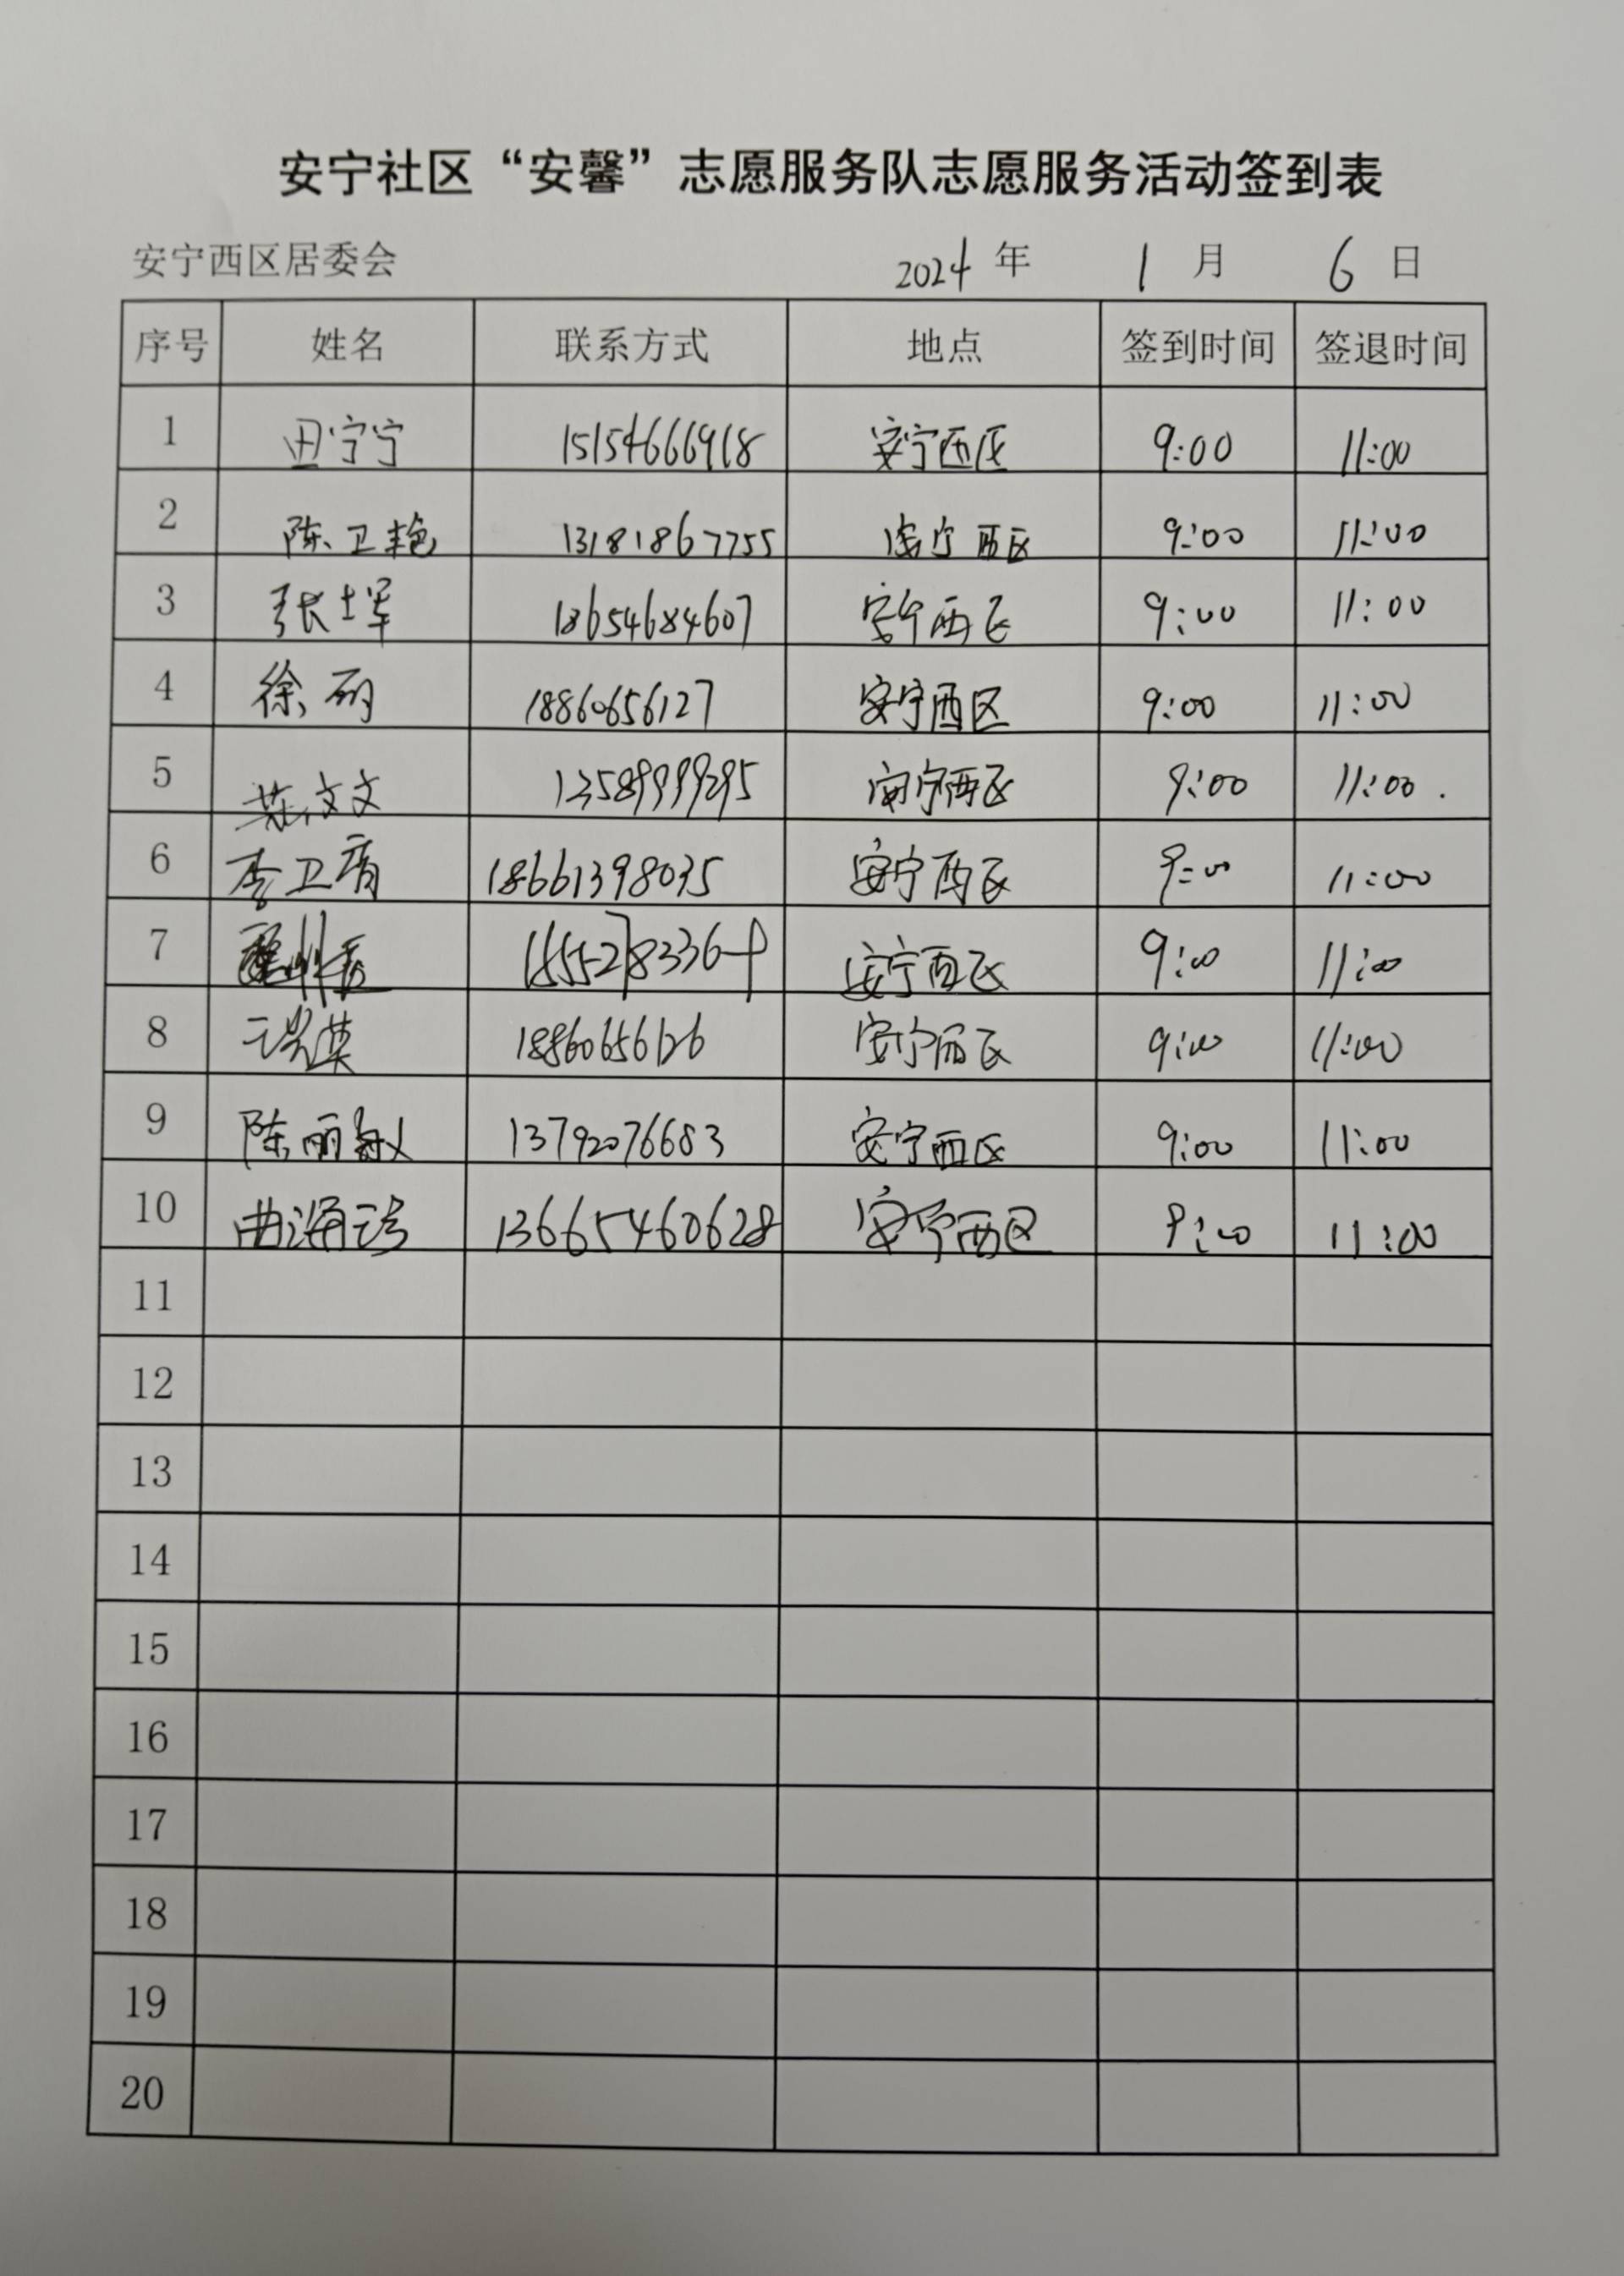 安宁社区“安馨”志愿服务队志愿服务活动签到表
安宁西区居委会 2024 年 1 月 6 日
序号 姓名 联系方式 地点 签到时间 签退时间
1 田宁宁 15154666918 安宁西区 9:00 11:00
2 陈卫艳 13181867755 安宁西区 9:00 11:00
3 张士军 18654684607 安宁西区 9:00 11:00
4 徐丽 18860656127 安宁西区 9:00 11:00
5 文文 13589999295 安宁西区 9:00 11:00.
6 李卫青 18661398035 安宁西区 9:00 11:00
7 安宁西区 9:00 11:00
8 18860656126 安宁西区 9:00 11:00
9 陈丽敏 13792076683 安宁西区 9:00 11:00
10 曲海 13665460628 安宁西区 9:00 11:00
11
12
13
14
15
16
17
18
19
20